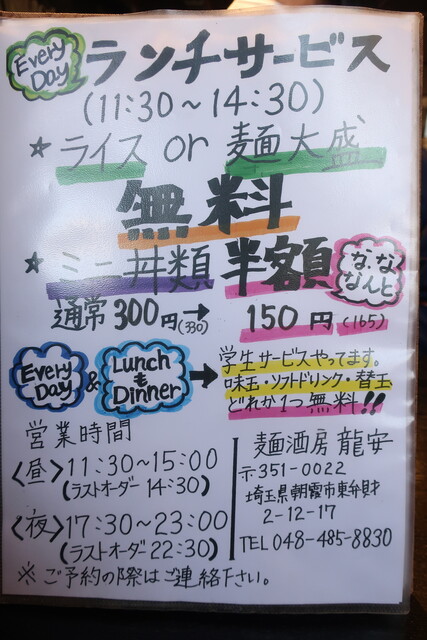 Every Day
ランチサービス
(11:30～14:30)
★ ライス or 麺大盛
無料
★ ミニ丼類 半額
な、な なんと
通常300円(330)→150円(165)
Every Day & Lunch も Dinner →
学生サービスやってます。
味玉・ソフトドリンク・替玉
どれか1つ無料!!
営業時間
<昼>11:30～15:00
(ラストオーダー 14:30)
<夜>17:30～23:00
(ラストオーダー 22:30)
※ご予約の際はご連絡下さい。
麺酒房 龍安
〒351-0022
埼玉県朝霞市東弁財
2-12-17
TEL 048-485-8830